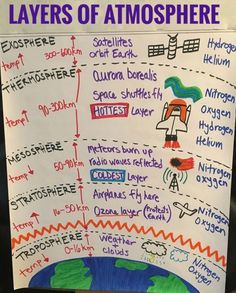 LAYERS OF ATMOSPHERE
EXOSPHERE
temp↑
300-600km
Satellites
orbit Earth
Hydrogen
Helium
THERMOSPHERE
temp↑
90-300km
Aurora borealis
Space shuttles fly
HOTTEST layer
Nitrogen
Oxygen
Hydrogen
Helium
MESOSPHERE
temp↓
50-90km
Meteors burn up
radio waves reflected
COLDEST layer
Nitrogen
Oxygen
STRATOSPHERE
temp↑
16-50km
Airplanes fly here
Ozone layer (Protects Earth)
Nitrogen
Oxygen
TROPOSPHERE
temp↓
0-16km
Weather
clouds
Nitrogen
Oxygen